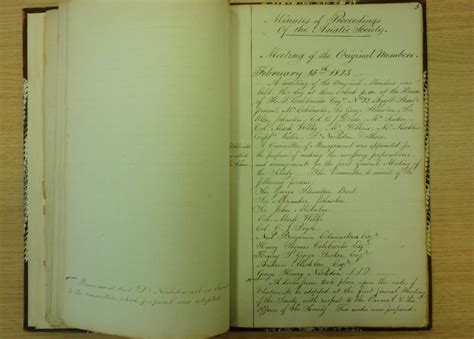 3
Minutes of Proceedings
Of the Asiatic Society.
Meeting of the Original Members
February 15th 1823.
A meeting of the Original Members was
held this day at three o'clock p.m. at the House
of H. T. Colebrooke Esqr. No 22 Argyll Street
present, Mr Colebrooke, Sir George Staunton, Sir
Alexr Johnston, Col. C. J. Doyle,
Col. Mark Wilks, Dr Noehden
A Committee of Management was appointed for
the purpose of making the necessary preparations
and arrangements for the first General Meeting of
the Society. The Committee to consist of the
following persons
Sir George Staunton Bart.
Sir Alexander Johnston
Sir John Malcolm
Col. Mark Wilks
Col. C. J. Doyle
Neil Benjamin Edmonstone Esqr.
Henry Thomas Colebrooke Esqr.
Henry St George Tucker Esqr.
Andrew
George Henry Noehden LLD
A discussion took place upon the mode of
to be adopted at the first general Meeting
of the Society with respect to the Council & the
Officers of the Society. Two modes were proposed
Dr Noehden
to the committee which proposal was adopted